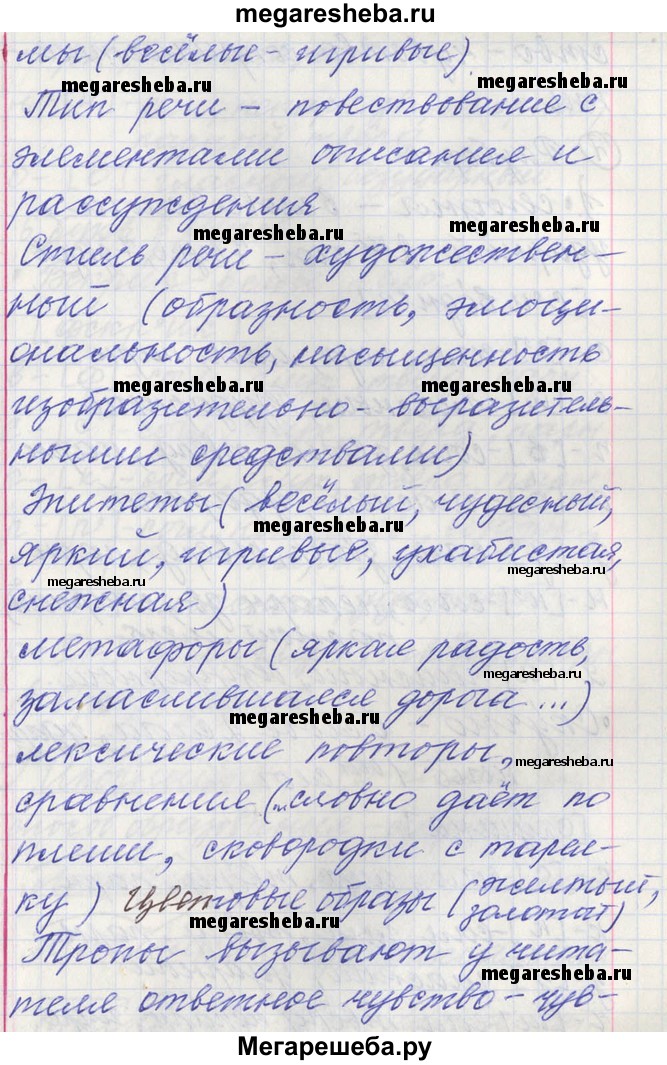 megaresheba.ru
мы (весёлые - игривые)
megaresheba.ru
megaresheba.ru
Тип речи - повествование с
элементами описания и
рассуждения.
megaresheba.ru
megaresheba.ru
Стиль речи - художествен-
ный (образность, эмоци-
ональность, насыщенность
megaresheba.ru
megaresheba.ru
изобразительно-выразитель-
ными средствами)
Эпитеты (весёлый, чудесный,
megaresheba.ru
яркий, игривые, ухабистая,
megaresheba.ru
megaresheba.ru
снежная)
метафоры (яркая радость,
megaresheba.ru
замаслившаяся дорога ...)
megaresheba.ru
лексические повторы,
megaresheba.ru
сравнения (...словно даёт по
плеши, сковородки с тарел-
ку) Цветовые образы (жёлтый,
золотой)
megaresheba.ru
Тропы вызывают у чита-
megaresheba.ru
теля ответное чувство - чув-
Мегарешеба.ру